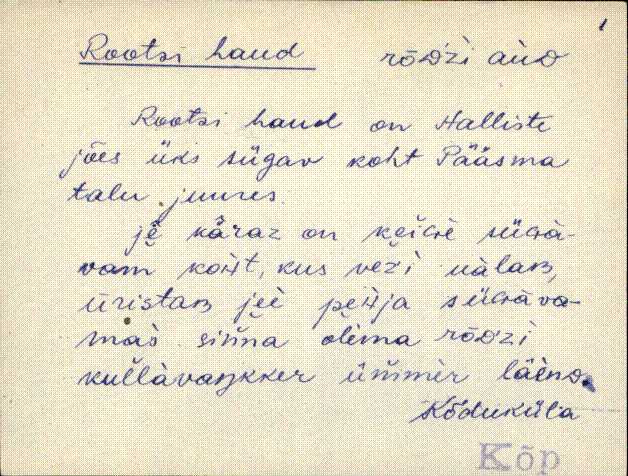 Rootsi haud rōᴅ́zi aùᴅ
Rootsi haud on Halliste
jões üks sügav koht Pääsma
talu juures.
jē̮ kǟraz on ke̮iɢe süɢà-
vam koıʜt, kus vezi uàlaʙ,
üristaʙ jē̮è pe̮ıʜja süɢàva-
màs siǹna olèma rōᴅ́zi
kullàvaŋkker üm̆mèr läènᴅ.
Kõduküla
Kõp